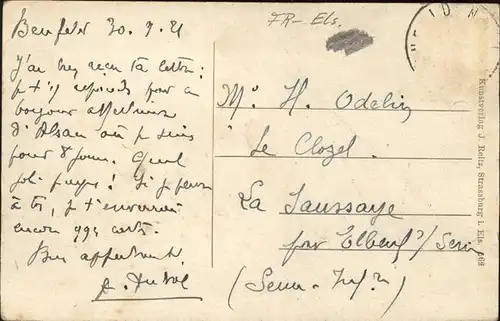 Benfeld 30.9.21
J'ai bien reçu ta lettre :
j t'y réponds par un
bonjour affectueux
d'Alsace où je suis
pour 8 jours. Quel
joli pays ! Si je pense
à toi, je t'enverrai
encore qqs cartes.
Bien affectueust.
FR-Els.
Mr. H. Odelin
Le Clozel
La Saussaye
par Elbeuf s/Seine
(Seine-Infre)
Kunstverlag J. Reitz, Strassburg i. Els.